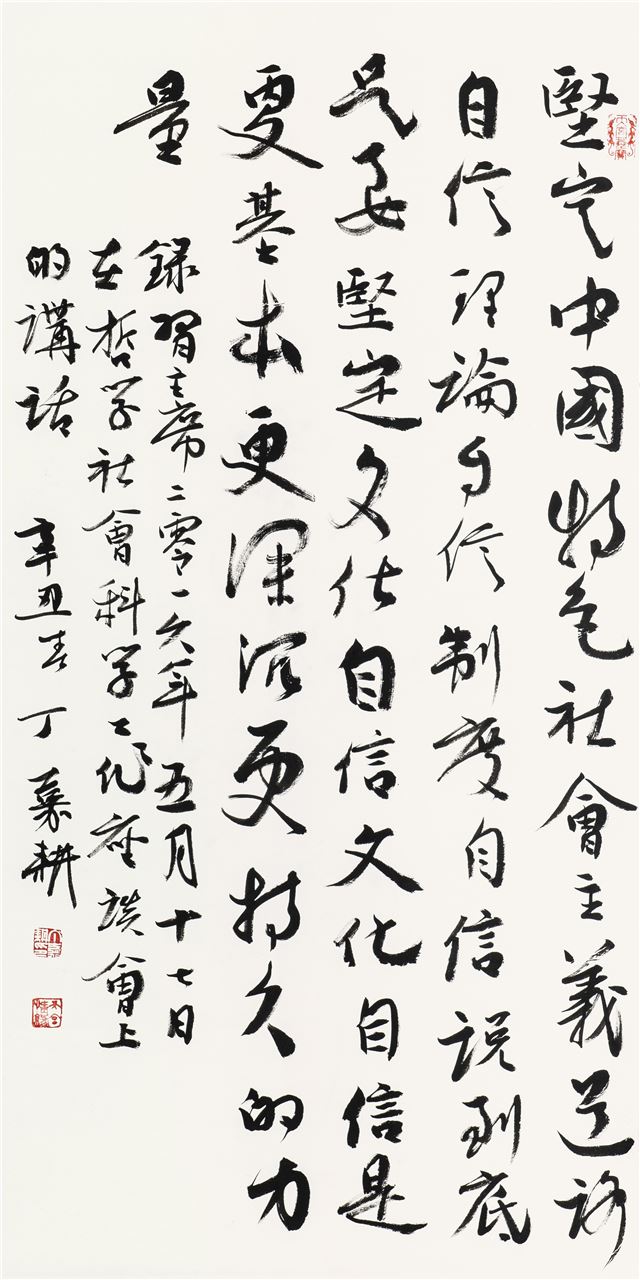 堅定中國特色社會主義道路
自信理論自信制度自信說到底
是要堅定文化自信文化自信是
更基本更深沉更持久的力
量
錄習主席二零一六年五月十七日
在哲學社會科學工作座談會上
的講話 辛丑春 丁慕耕